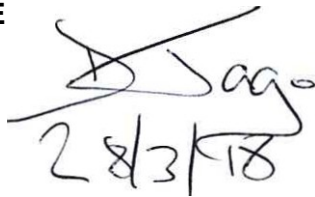 E
D Jago
28/3/18